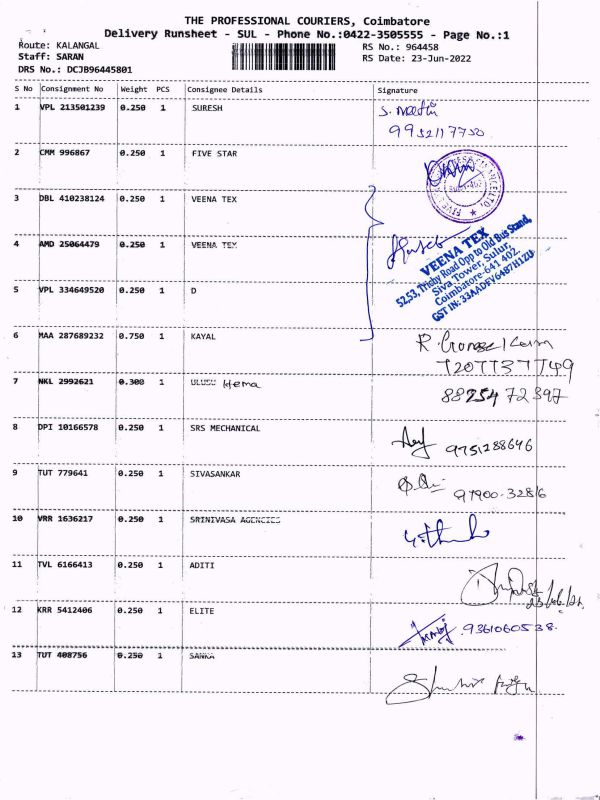 THE PROFESSIONAL COURIERS, Coimbatore
Delivery Runsheet - SUL - Phone No.:0422-3505555 - Page No.:1
Route: KALANGAL
RS No.: 964458
Staff: SARAN
RS Date: 23-Jun-2022
DRS No.: DCJB96445801
S No Consignment No Weight PCS Consignee Details Signature
1 VPL 213501239 0.250 1 SURESH
9952117750
2 CMM 996867 0.250 1 FIVE STAR
3 DBL 410238124 0.250 1 VEENA TEX
4 AMD 25064479 0.250 1 VEENA TEX
VEENA TEX
52,53, Trichy Road Opp to Old Bus Stand,
Siva Tower, Sulur,
Coimbatore-641 402.
GST IN: 33AADFV6487H1ZU
5 VPL 334649520 0.250 1 D
6 MAA 287689232 0.750 1 KAYAL
7207737749
7 NKL 2992621 0.300 1 Hema
8825472397
8 DPI 10166578 0.250 1 SRS MECHANICAL
9751288646
9 TUT 779641 0.250 1 SIVASANKAR
97900-32816
10 VRR 1636217 0.250 1 SRINIVASA AGENCIES
11 TVL 6166413 0.250 1 ADITI
12 KRR 5412406 0.250 1 ELITE
9361060538.
13 TUT 408756 0.250 1 SANKA